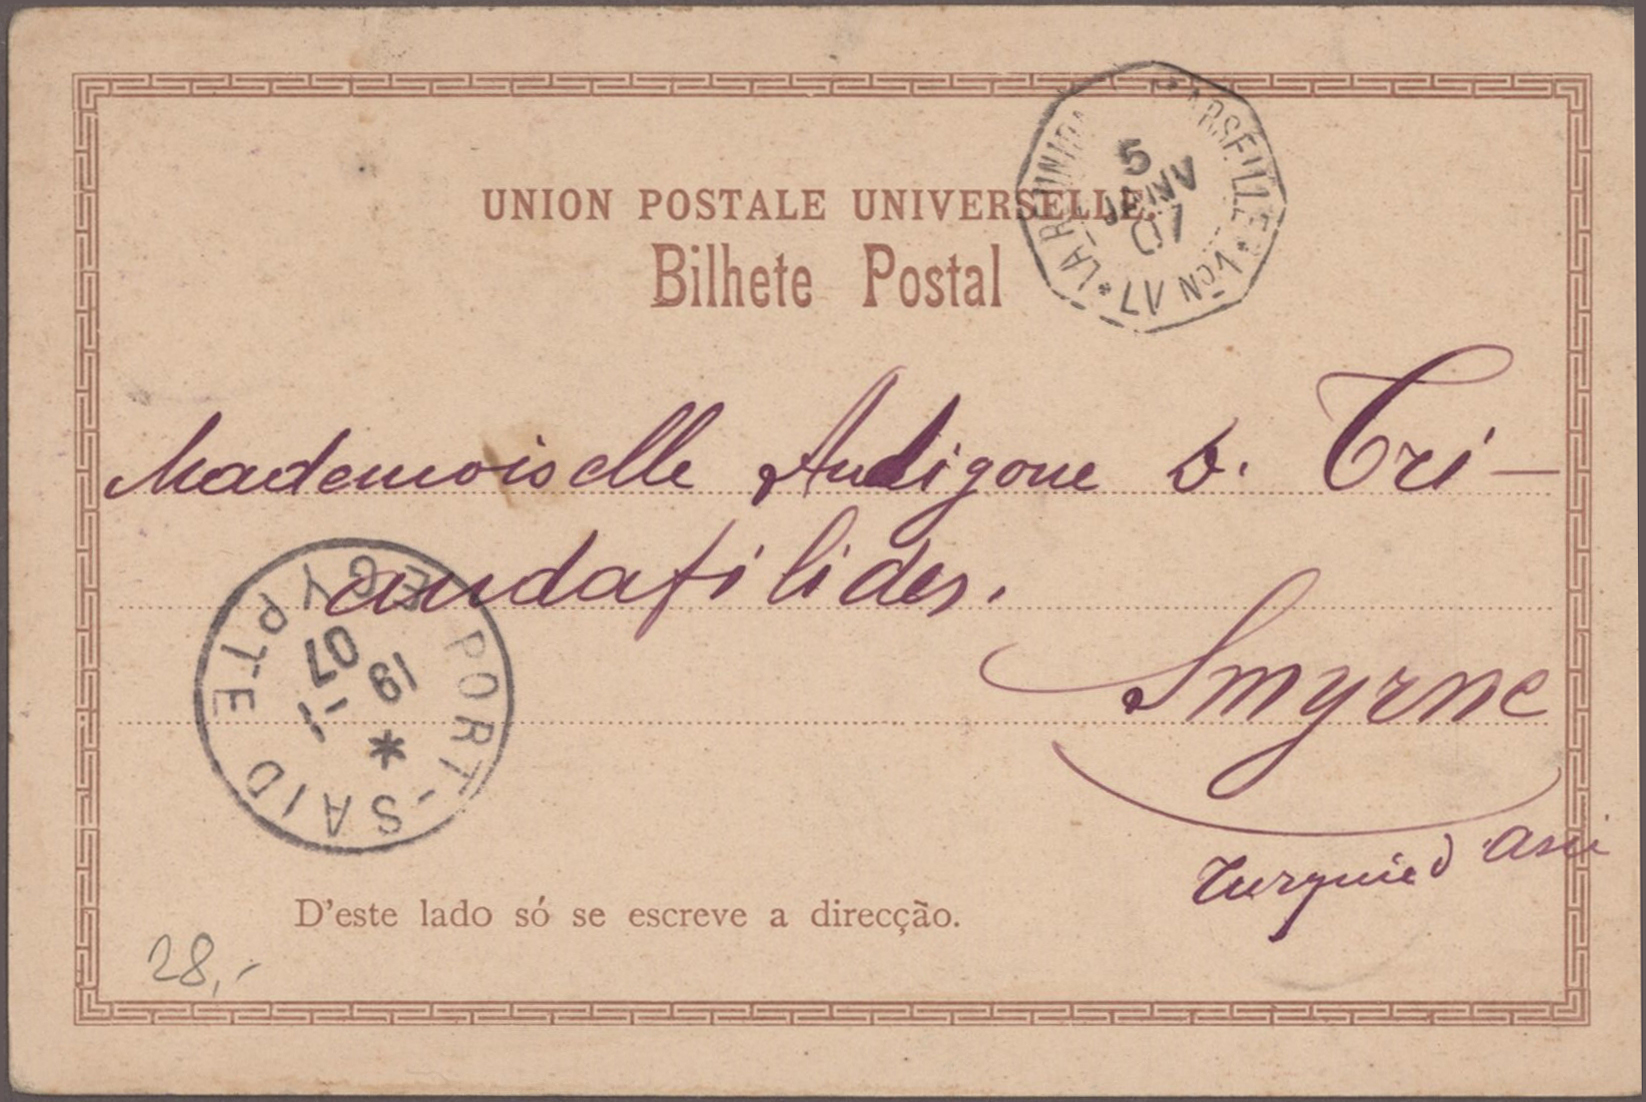 UNION POSTALE UNIVERSELLE.
Bilhete Postal
LA RÉUNION À MARSEILLE * L.V N° 1 *
5
JANV
07
Mademoiselle Andigone D. Tri-
andafilides.
Smyrne
Turquie d'Asie
PORT-SAID EGYPTE
19
-1
07
D'este lado só se escreve a direcção.
28,-